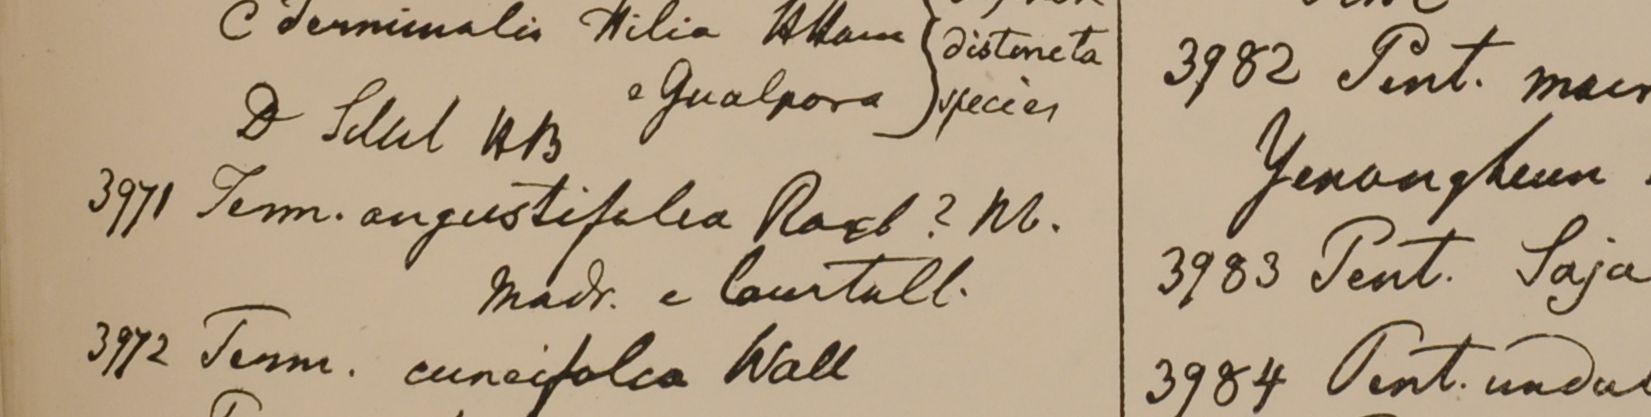 C Terminalia Hilia HHam
e Gualpora
distincta
species
D Silhet HB
3971 Term. angustifolia Roxb? Hb.
Madr. e Courtall.
3972 Term. cuneifolia Wall
3982 Pent.
Yenangheun
3983 Pent. Saja
3984 Pent. undul